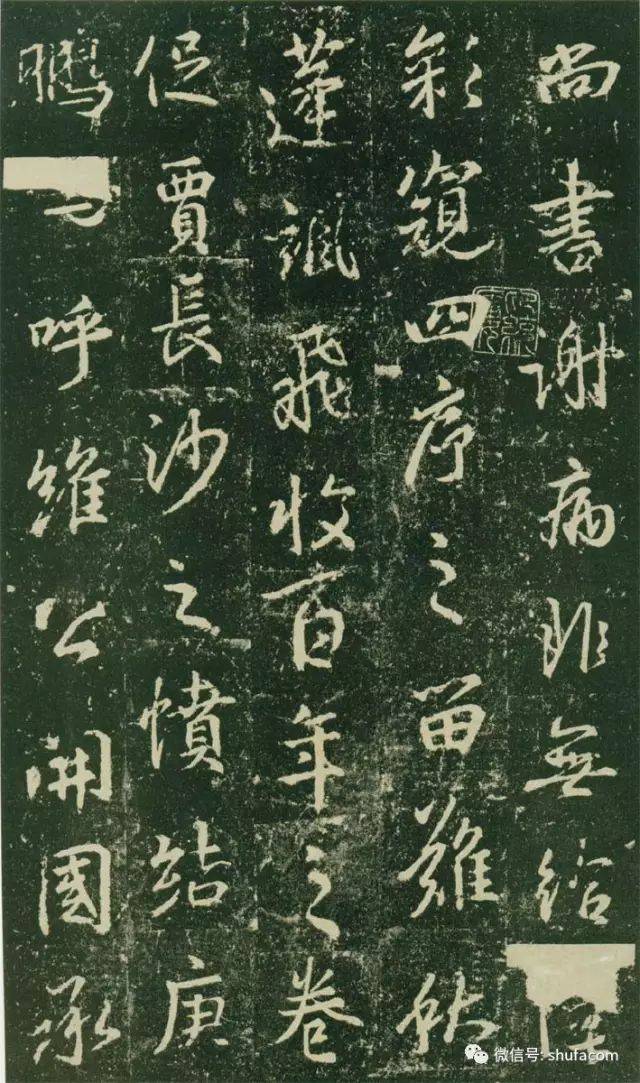 尚書謝病非無給
彩窺四序之留難
蓬颯飛收百年之卷
促賈長沙之憤結庚
鵩呼維公開國承
微信号: shufacom